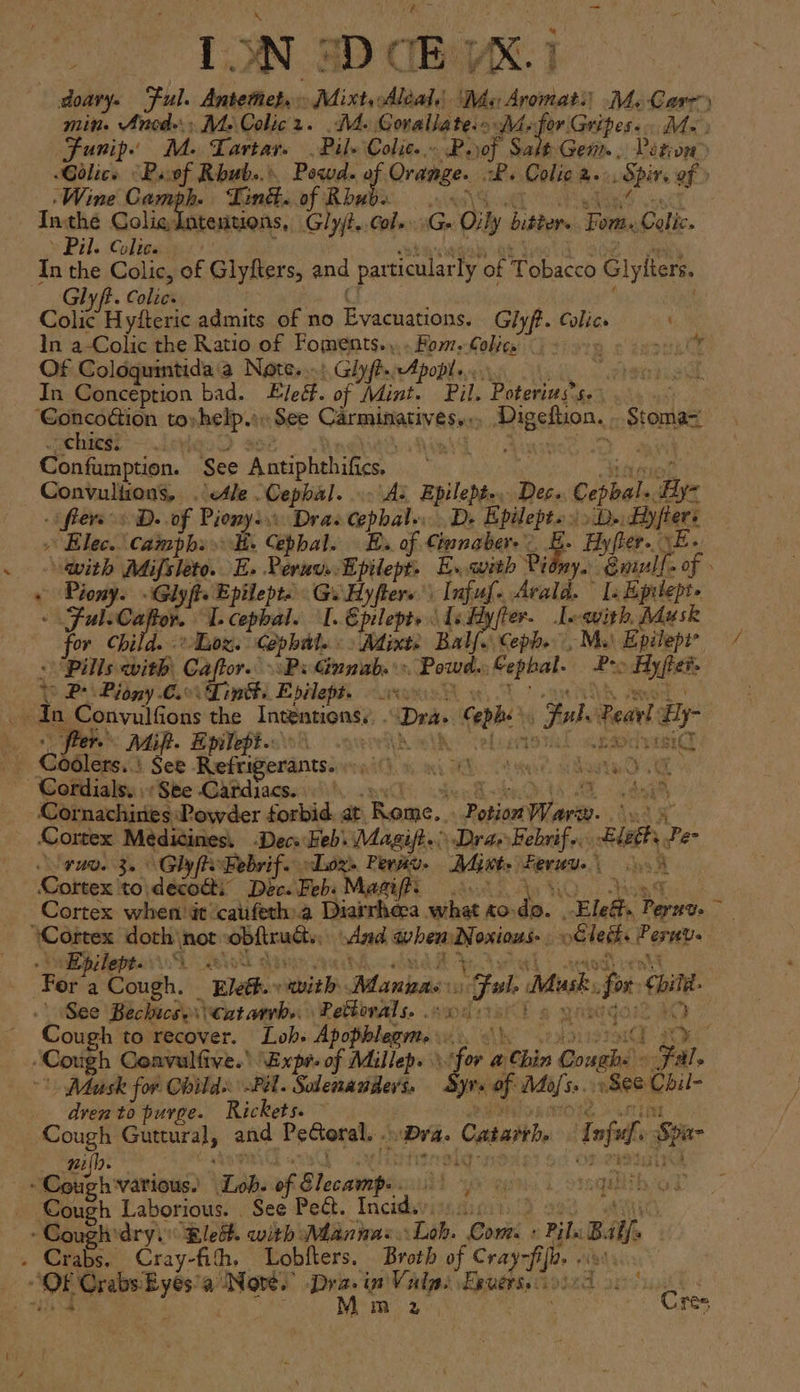 INDEX.
doary. Ful. Antemet. Mixt. Aloal. M. Aromat. M. Car-
min. Anod. M. Colic 2. M. Corallate. M. for Gripes. M.
Junip. M. Tartar. Pil. Colic. P. of Salt Gem. Potion
Colic. P. of Rhub. Powd. of Orange. P. Colic 2. Spir. of
Wine Camph. Tinct. of Rhub.
In the Colic Intentions, Glyst. Col. G. Oily bitter. Fom. Colic.
Pil. Colic.
In the Colic, of Glysters, and particularly of Tobacco Glysters.
Glyst. Colic.
Colic Hysteric admits of no Evacuations. Glyst. Colic.
In a Colic the Ratio of Foments. Fom. Colic,
Of Coloquintida a Note. Glyst. Apopl.
In Conception bad. Elect. of Mint. Pil. Poterius's.
Concoction to help. See Carminatives, Digestion. Stoma-
chics.
Consumption. See Antiphthisics.
Convulsions, Ale Cephal. A. Epilept. Dec. Cephal. Hy-
ster. D. of Piony. Dra. Cephal. D. Epilept. D. Hyster.
Elec. Camph. E. Cephal. E. of Cinnaber. E. Hyster. E.
with Missleto. E. Peruv. Epilept. E. with Piony. Emuls. of
Piony. Glyst. Epilept. G. Hyster. Infus. Arald. I. Epilept.
Ful. Castor. I. cephal. I. Epilept. I. Hyster. I. with Musk
for Child. Loz. Cephal. Mixt. Balf. Ceph. M. Epilept
Pills with Castor. P. Cinnab. Powd. Cephal. P. Hyster.
P. Piony C. Tinct. Epilept.
In Convulsions the Intentions. Dra. Ceph. Ful. Pearl Hy-
ster. Mist. Epilept.
Coolers. See Refrigerants.
Cordials. See Cardiacs.
Cornachines Powder forbid at Rome. Potion Warw.
Cortex Medicines. Dec. Feb. Magist. Dra. Febrif. Elect. Pe-
ruv. 3. Glyst. Febrif. Loz. Peruv. Mixt. Peruv.
Cortex to decoct. Dec. Feb. Magist.
Cortex when it causeth a Diarrhœa what to do. Elect. Peruv.
Cortex doth not obstruct. And when Noxious. Elect. Peruv.
Epilept.
For a Cough. Elect. with Manna. Ful. Musk. for Child.
See Bechics. Catarrh. Pectorals.
Cough to recover. Loh. Apophlegm.
Cough Convulsive. Expr. of Millep. for a Chin Cough. Ful.
Musk for Child. Pil. Solenanders. Syr. of Moss. See Chil-
dren to purge. Rickets.
Cough Guttural, and Pectoral. Dra. Catarrh. Infus. Spa-
nish.
Cough various. Loh. of Elecamp.
Cough Laborious. See Pect. Incid.
Cough dry. Elect. with Manna. Loh. Com. Pil. Balf.
Crabs. Cray-fish. Lobsters. Broth of Cray-fish.
Of Crabs Eyes a Note. Dra. in Vuln.
M m 2
Cres